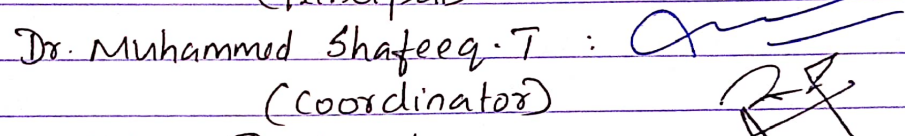 Dr. Muhammed Shafeeq. T :
(Coordinator)